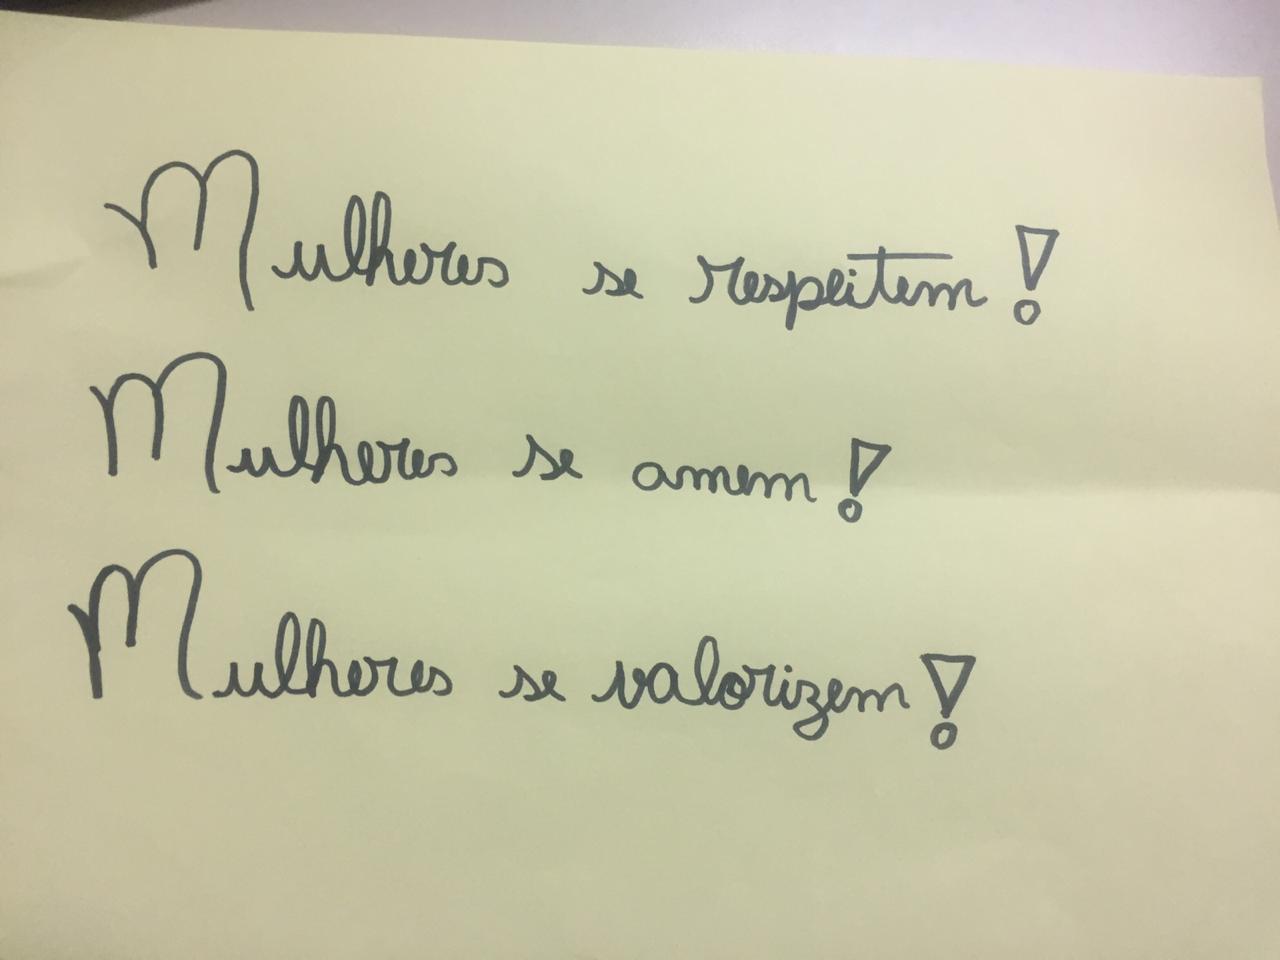 Mulheres se respeitem!
Mulheres se amem!
Mulheres se valorizem!